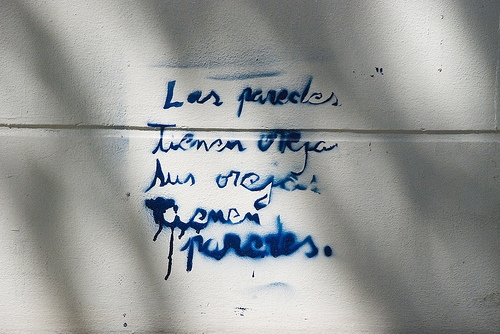 Las paredes
Tienen oreja
Sus orejas
Tienen
paredes.